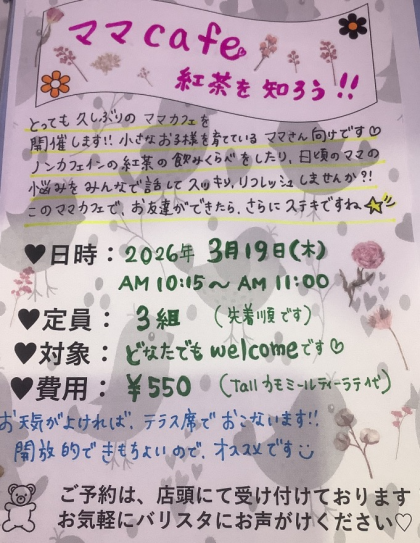 ママcafe
紅茶を知ろう!!
とっても久しぶりのママカフェを
開催します!! 小さなお子様を育てているママさん向けです♡
ノンカフェインの紅茶の飲みくらべをしたり、日頃のママの
悩みをみんなで話してスッキリ、リフレッシュしませんか?!
このママカフェで、お友達ができたら、さらにステキですね☆
♥日時：2026年 3月19日(木)
AM 10:15〜AM 11:00
♥定員： 3組 (先着順です)
♥対象：どなたでもwelcomeです♡
♥費用：¥550 (Tall カモミールティーラテ代)
お天気がよければ、テラス席でおこないます!!
開放的できもちよいので、オススメです
ご予約は、店頭にて受け付けております
お気軽にバリスタにお声がけください♡